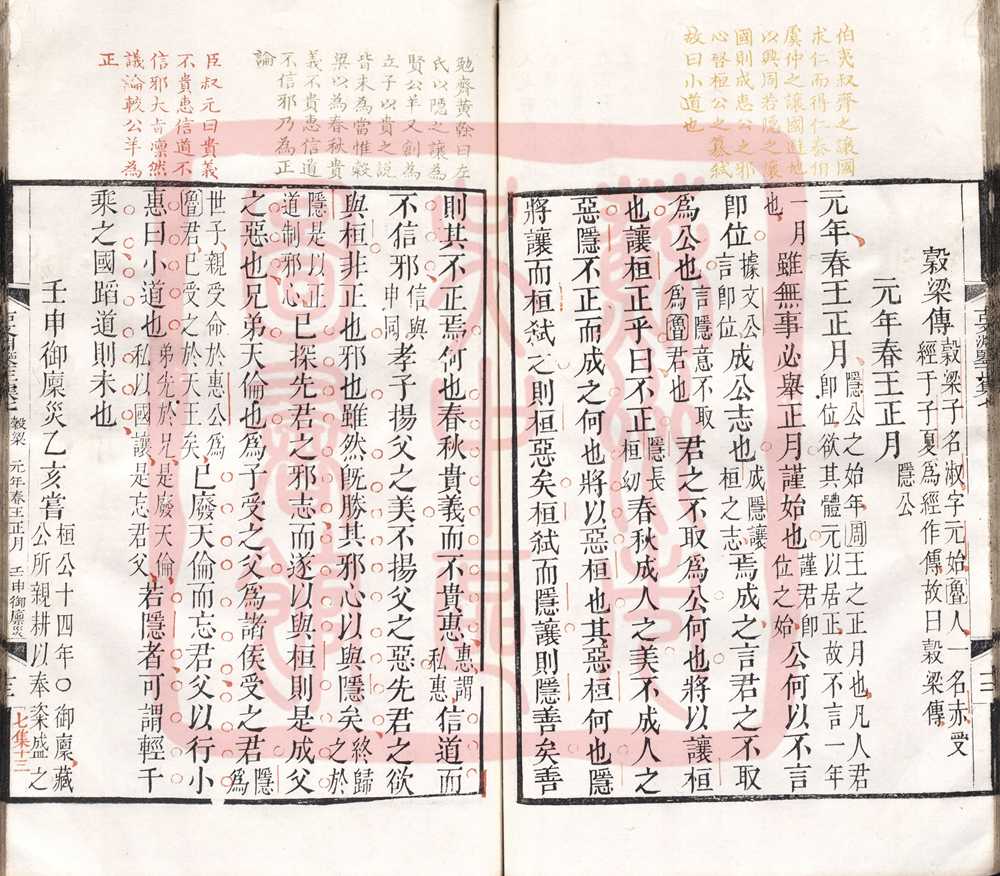 伯夷叔齊之讓國
求仁而得仁泰伯
虞仲之讓國適
以興周若隱之讓
國則成惠公之邪
心啓桓公之簒弒
故曰小道也
穀梁傳穀梁子名淑字元始魯人一名赤受經于子夏爲經作傳故曰穀梁傳
元年春王正月隱公
元年春王正月隱公之始年周王之正月也凡人君即位欲其體元以居正故不言一年
一月也雖無事必舉正月謹始也謹君即位之始公何以不言
即位據文公言即位成公志也成隱讓桓之志焉成之言君之不取
爲公也言隱意不取爲魯君也君之不取爲公何也將以讓桓
也讓桓正乎曰不正隱長桓幼春秋成人之美不成人之
惡隱不正而成之何也將以惡桓也其惡桓何也隱
將讓而桓弒之則桓惡矣桓弒而隱讓則隱善矣善
勉齋黃榦曰左
氏以隱之讓爲
賢公羊又創爲
立子以貴之說
皆未為當惟穀
梁以為春秋貴
義不貴惠信道
不信邪乃為正
論
臣叔元曰貴義
不貴惠信道不
信邪大旨凛然
議論較公羊為
正
則其不正焉何也春秋貴義而不貴惠惠謂私惠信道而
不信邪信與申同孝子揚父之美不揚父之惡先君之欲
與桓非正也邪也雖然旣勝其邪心以與隱矣終歸之於
隱是以正道制邪心已探先君之邪志而遂以與桓則是成父
之惡也兄弟天倫也爲子受之父爲諸侯受之君隱爲
世子親受命於惠公爲魯君已受之於天王矣已廢天倫而忘君父以行小
惠曰小道也弟先於兄是廢天倫私以國讓是忘君父若隱者可謂輕千
乘之國蹈道則未也
壬申御廪災乙亥嘗桓公十四年〇御廪藏公所親耕以奉粢盛之
穀梁 元年春王正月 壬申御廪災
七集十三